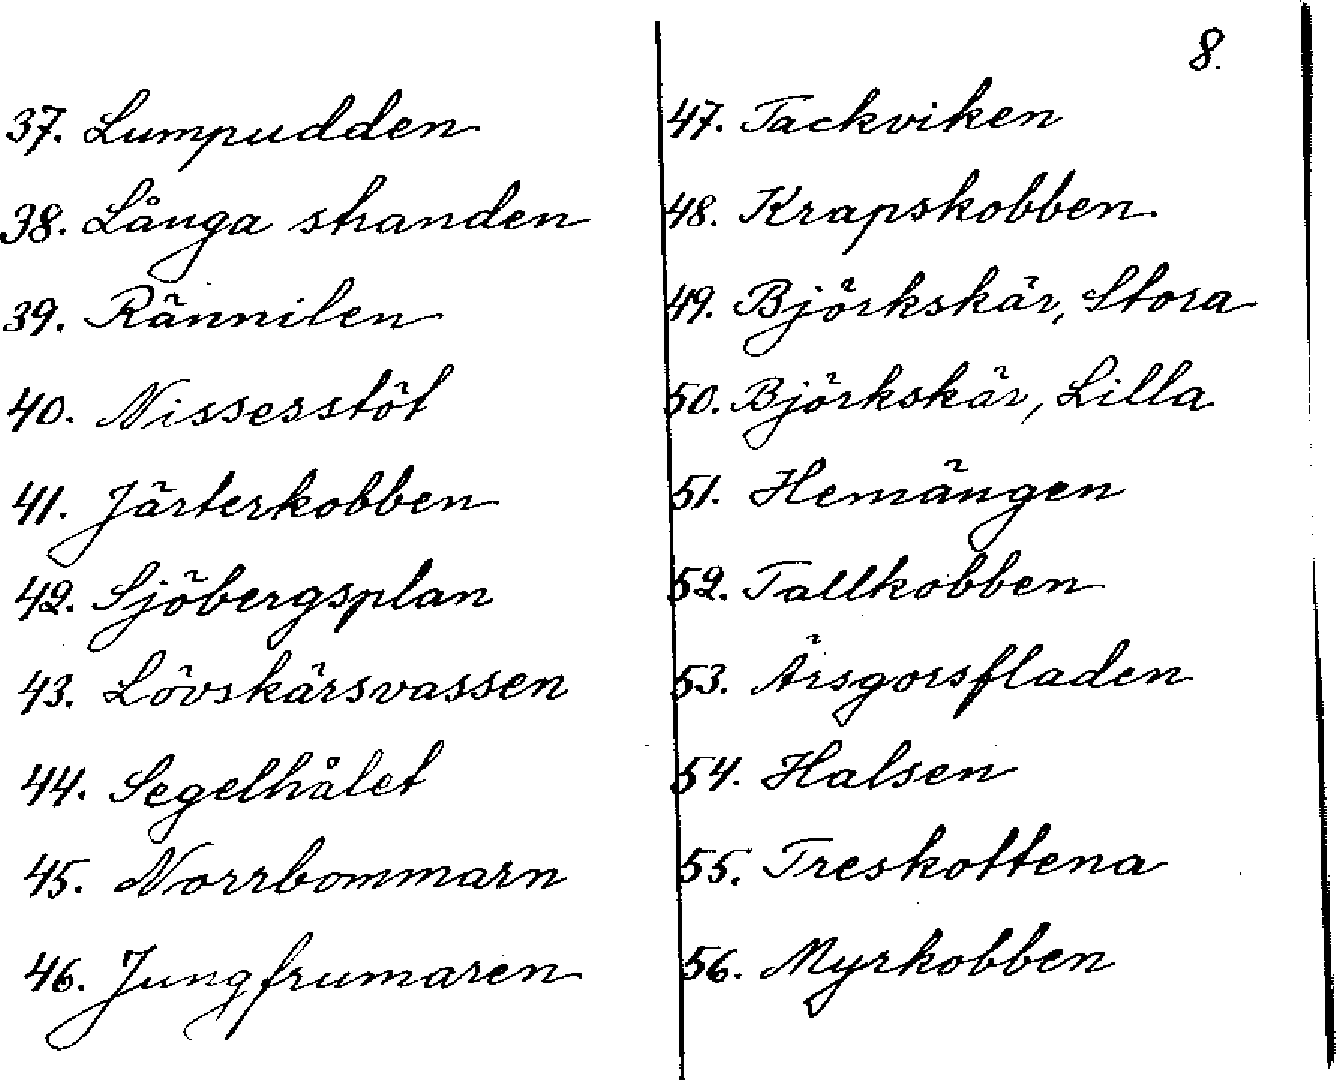 8.
37. Lumpudden
38. Långa stranden
39. Rännilen
40. Nissesstöt
41. Järterkobben
42. Sjöbergsplan
43. Lövskärsvassen
44. Segelhålet
45. Norrbommarn
46. Jungfrumaren
47. Tackviken
48. Krapskobben
49. Björkskär, Stora
50. Björkskär, Lilla
51. Hemängen
52. Tallkobben
53. Ärsgorsfladen
54. Halsen
55. Treskottena
56. Myrkobben